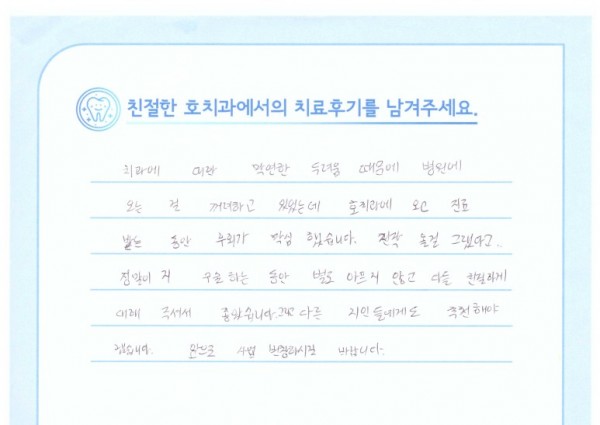 친절한 호치과에서의 치료후기를 남겨주세요.
치과에 대한 막연한 두려움 때문에 병원에
오는 걸 꺼려하고 있었는데 호치과에 오고 진료
받는 동안 후회가 막심 했습니다. 진작 올걸 그랬다고..
정말이 치 동안 별로 아프지 않고 다들 친절하게
대해 주셔서 좋았습니다. 그리고 다른 지인들에게도 추천해야
겠습니다. 앞으로 사업 번창하시길 바랍니다.